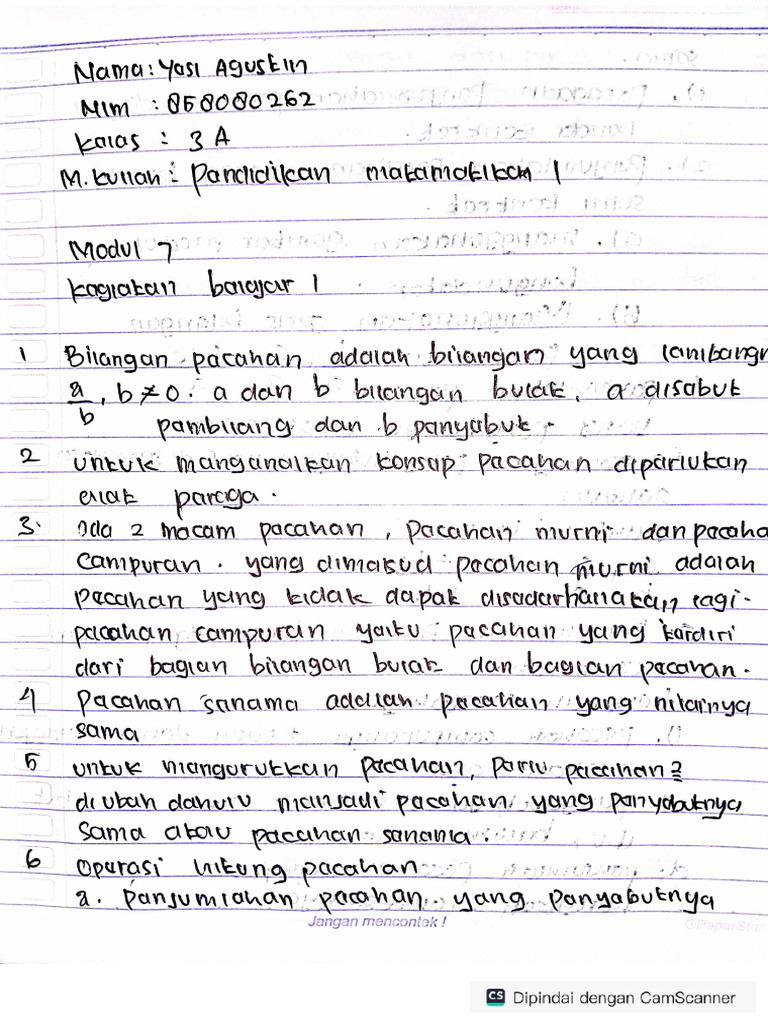 Nama: Yosi Agustin
Nim : 858080262
Kelas : 3 A
M. Kuliah : Pendidikan matematika 1
Modul 7
kegiatan belajar 1
1 Bilangan pecahan adalah bilangan yang lambangn
a/b, b ≠ 0. a dan b bilangan bulat, a disebut
pembilang dan b penyebut.
2 untuk mengenalkan konsep pecahan diperlukan
alat peraga.
3. Ada 2 macam pecahan, pecahan murni dan pecaha
campuran. yang dimaksud pecahan murni adalah
pecahan yang tidak dapat disederhanakan lagi.
pecahan campuran yaitu pecahan yang terdiri
dari bagian bilangan bulat dan bagian pecahan.
4 Pecahan senama adalah pecahan yang nilainya
sama
5 untuk mengurutkan pecahan, perlu pecahan2
diubah dahulu menjadi pecahan yang penyebutnya
sama atau pecahan senama.
6 Operasi hitung pecahan
a. Penjumlahan pecahan yang penyebutnya
Jangan mencontek!
@PaperStar
CS Dipindai dengan CamScanner